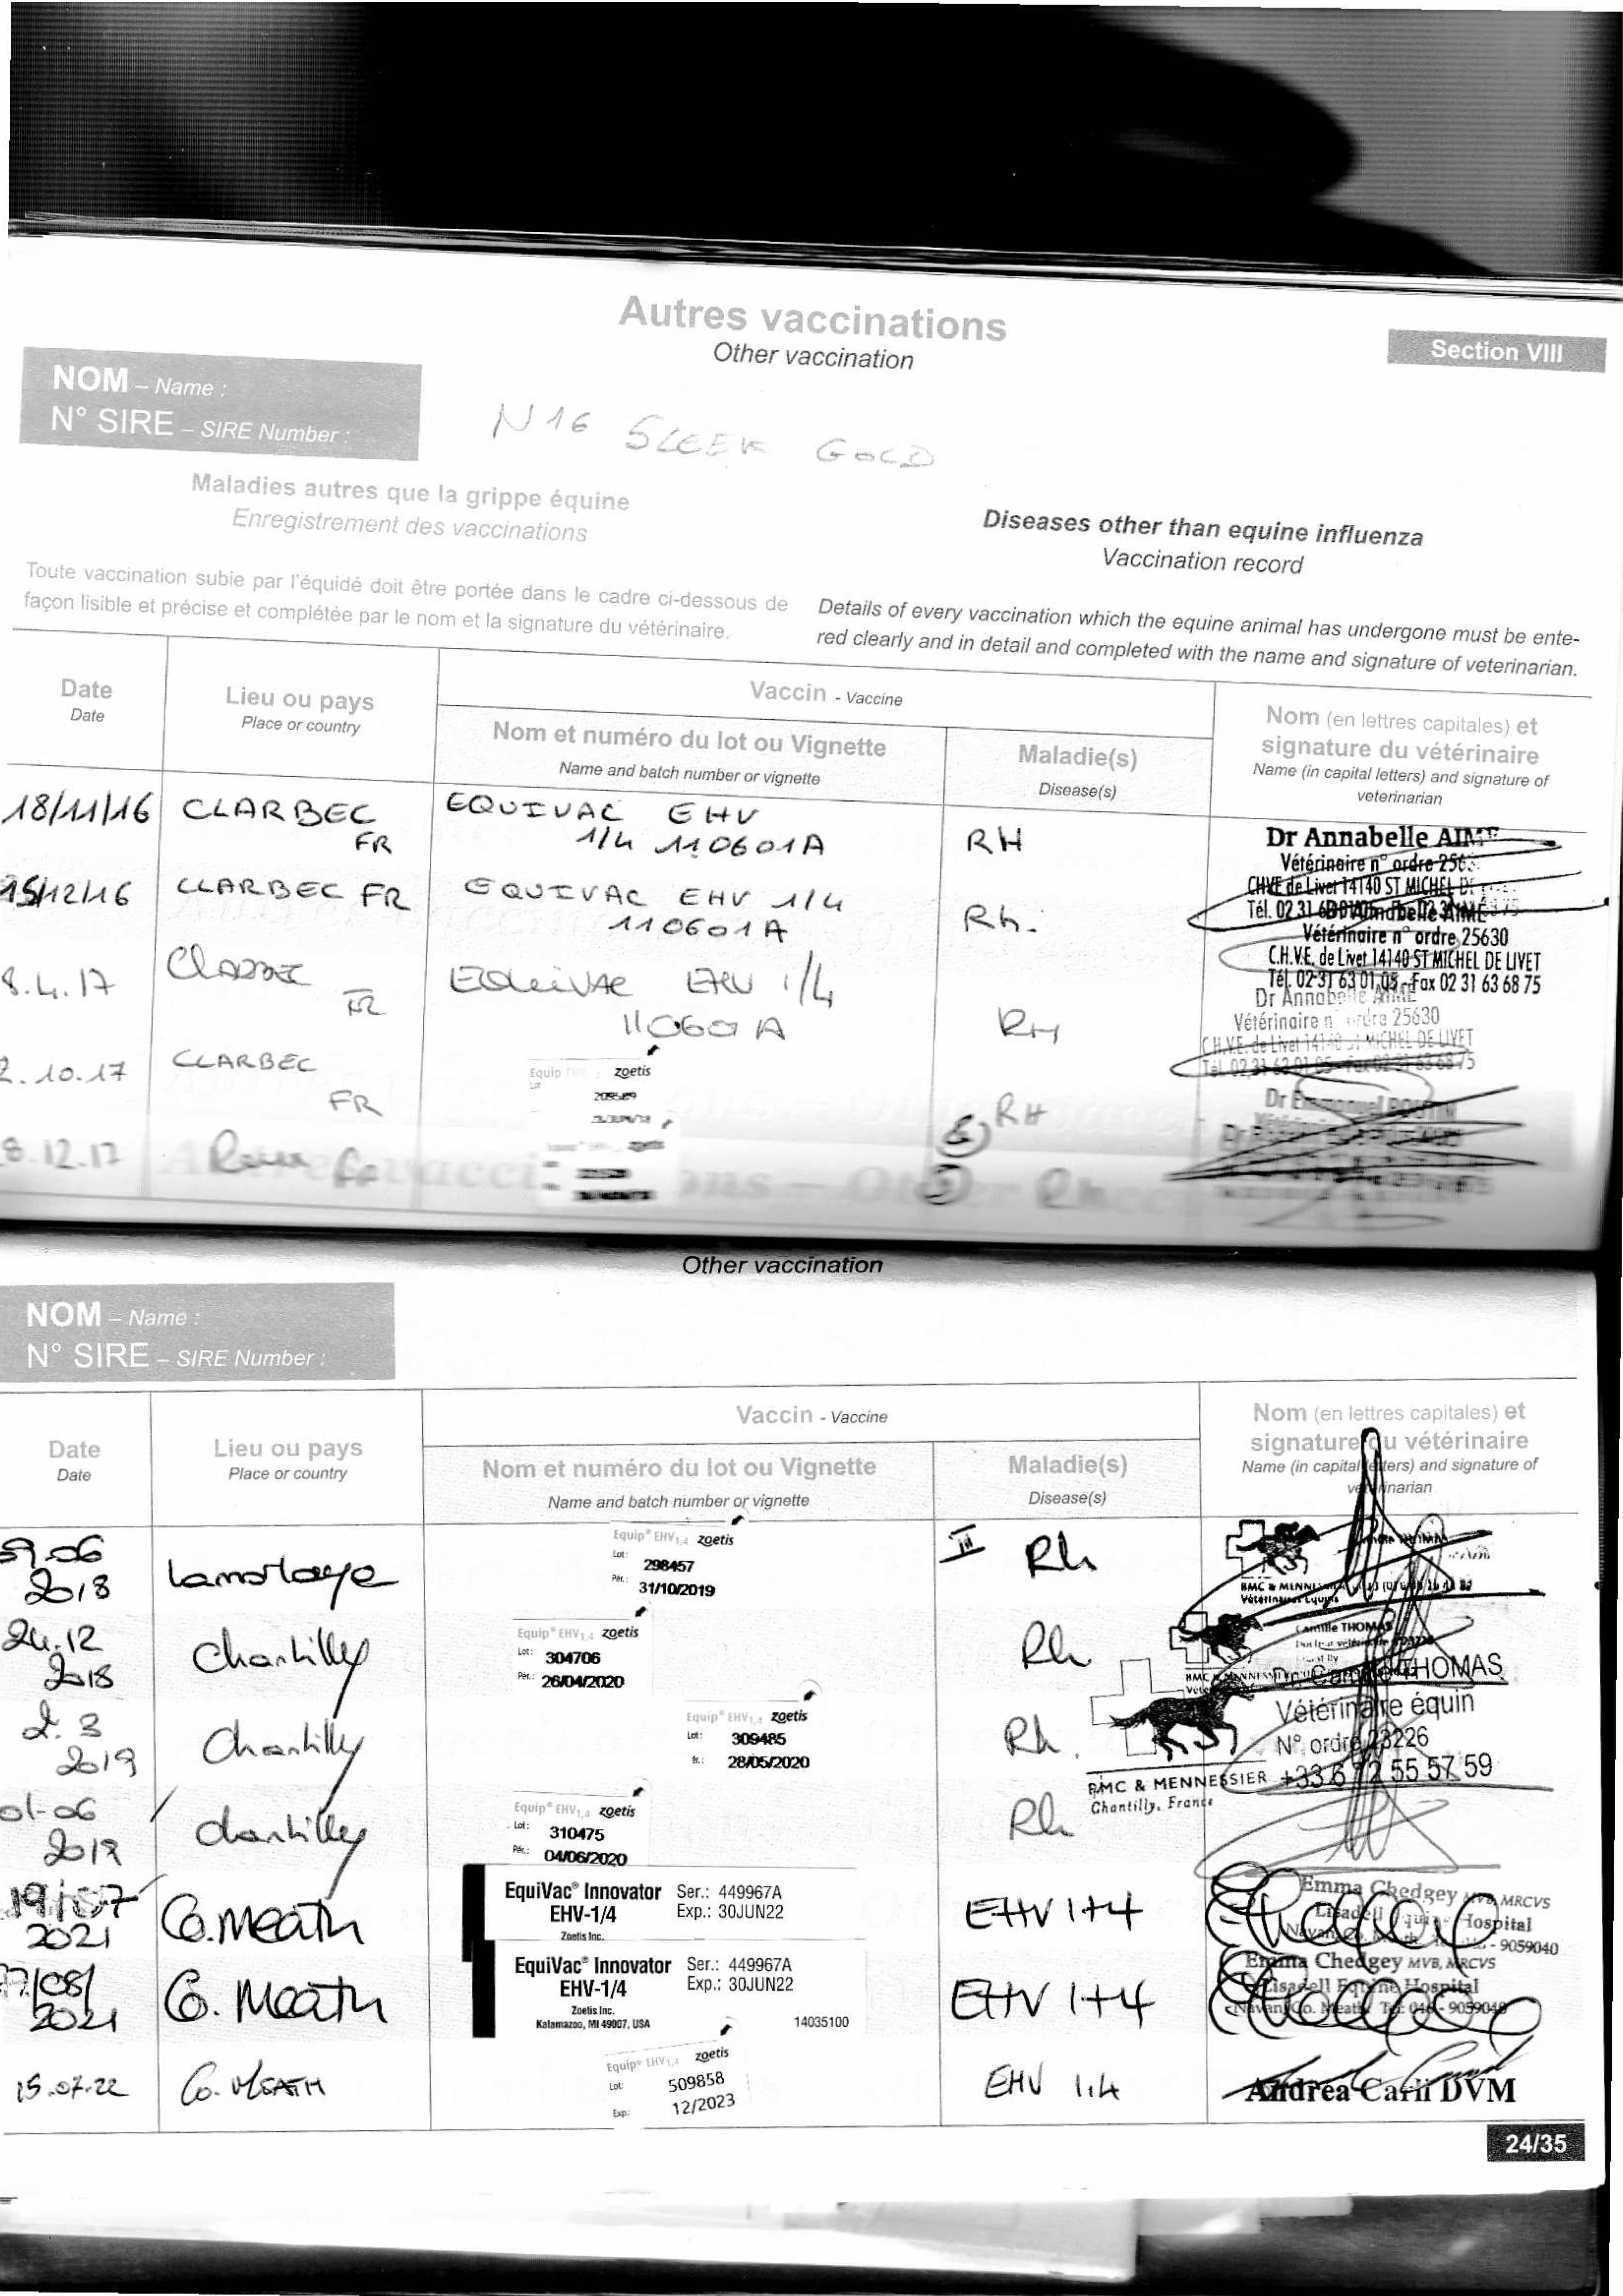 Autres vaccinations
Other vaccination
Section VIII
NOM – Name :
N° SIRE – SIRE Number :
N16 SLEEK GOLD
Maladies autres que la grippe équine
Enregistrement des vaccinations
Diseases other than equine influenza
Vaccination record
Toute vaccination subie par l'équidé doit être portée dans le cadre ci-dessous de
façon lisible et précise et complétée par le nom et la signature du vétérinaire.
Details of every vaccination which the equine animal has undergone must be ente-
red clearly and in detail and completed with the name and signature of veterinarian.
Date
Date
Lieu ou pays
Place or country
Vaccin - Vaccine
Nom et numéro du lot ou Vignette
Name and batch number or vignette
Maladie(s)
Disease(s)
Nom (en lettres capitales) et
signature du vétérinaire
Name (in capital letters) and signature of
veterinarian
18/11/16 CLARBEC EQUIVAC EHV
FR 1/4 110601A RH
Dr Annabelle AIME
Vétérinaire n° ordre
CHVE de Livet 14140 ST MICHEL
15/12/16 CLARBEC FR EQUIVAC EHV 1/4
110601A Rh.
Vétérinaire n° ordre 25630
C.H.V.E. de Livet 14140 ST MICHEL DE LIVET
Tél. 02 31 63 01 05 - Fax 02 31 63 68 75
8.4.17
FR 1/4
110601A RH
Dr Annabelle AIME
Vétérinaire n° ordre 25630
C.H.V.E. de Livet 14140 ST MICHEL DE LIVET
2.10.17 CLARBEC
FR
Equip zoetis
RH
Dr Emmanuel
8.12.17
Other vaccination
NOM – Name :
N° SIRE – SIRE Number :
Date
Date
Lieu ou pays
Place or country
Vaccin - Vaccine
Nom et numéro du lot ou Vignette
Name and batch number or vignette
Maladie(s)
Disease(s)
Nom (en lettres capitales) et
signature du vétérinaire
Name (in capital letters) and signature of
veterinarian
06
2018
Lamorlaye
Equip® EHV1,4 zoetis
Lot: 298457
Pér.: 31/10/2019
III Rh
BMC & MENNESSIER
24.12
2018
Chantilly
Equip® EHV1,4 zoetis
Lot: 304706
Pér.: 26/04/2020
Rh
Camille THOMAS
2.3
2019
Chantilly
Equip® EHV1,4 zoetis
Lot: 309485
28/05/2020
Rh.
THOMAS
Vétérinaire équin
N° ordre 23226
+33 6 72 55 57 59
BMC & MENNESSIER
Chantilly, France
01-06
2019
Chantilly
Equip® EHV1,4 zoetis
Lot: 310475
Pér.: 04/06/2020
Rh
19/07
2021
Co. Meath
EquiVac® Innovator Ser.: 449967A
EHV-1/4 Exp.: 30JUN22
Zoetis Inc.
EHV 1+4
Emma Chedgey MVB, MRCVS
Lisadell Equine Hospital
Navan, Co. Meath - 9059040
17/08/
2021
Co. Meath
EquiVac® Innovator Ser.: 449967A
EHV-1/4 Exp.: 30JUN22
Zoetis Inc.
Kalamazoo, MI 49007, USA 14035100
EHV 1+4
Emma Chedgey MVB, MRCVS
Lisadell Equine Hospital
Navan, Co. Meath Tel: 046 - 9059040
15.07.22
Co. MEATH
Equip® EHV1,4 zoetis
Lot: 509858
Exp: 12/2023
EHV 1.4
Andrea Carii DVM
24/35